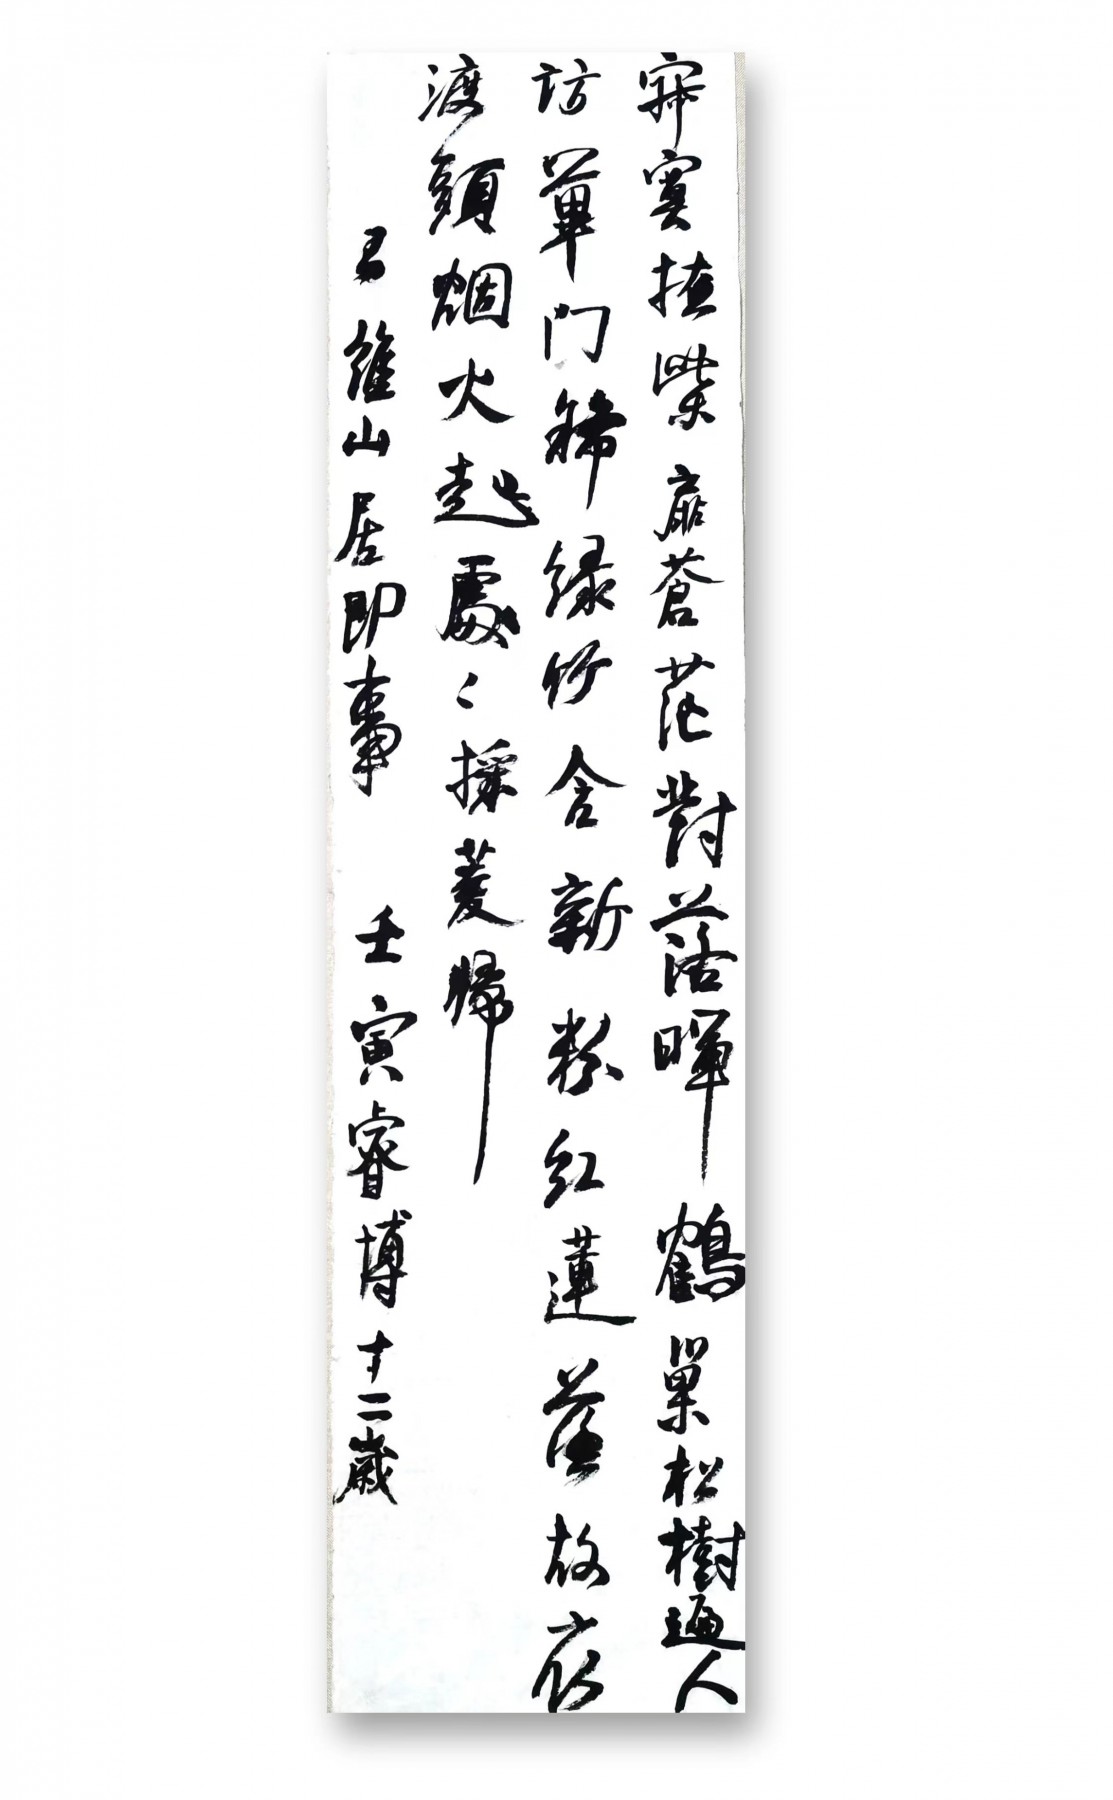 寂寞掩柴扉蒼茫對落暉鶴巢松樹遍人
訪蓽門稀綠竹含新粉紅蓮落故衣
渡頭烟火起處〻採菱歸
維山居即事 壬寅睿博十二歲